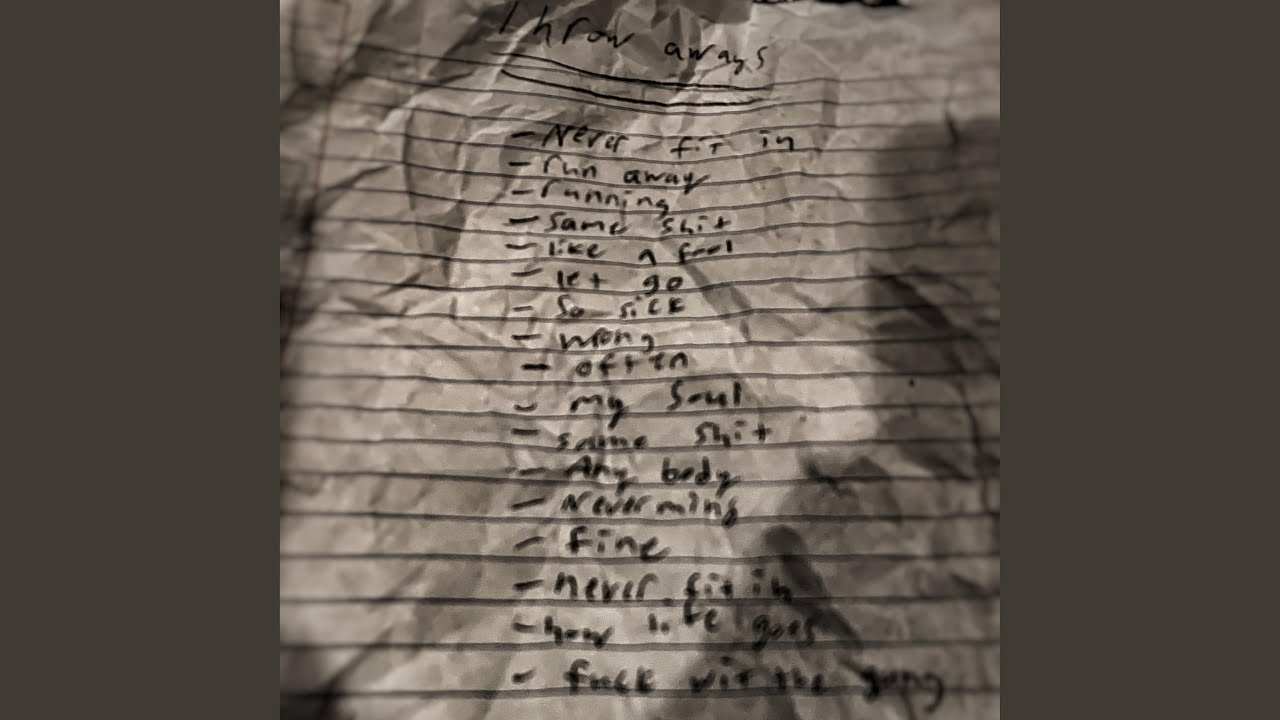 Throw aways
- Never fit in
- run away
- running
- same shit
- like a fool
- let go
- so sick
- wrong
- often
- my soul
- same shit
- Any body
- Neverming
- fine
- never fit in
- how life goes
- fuck wit the gang